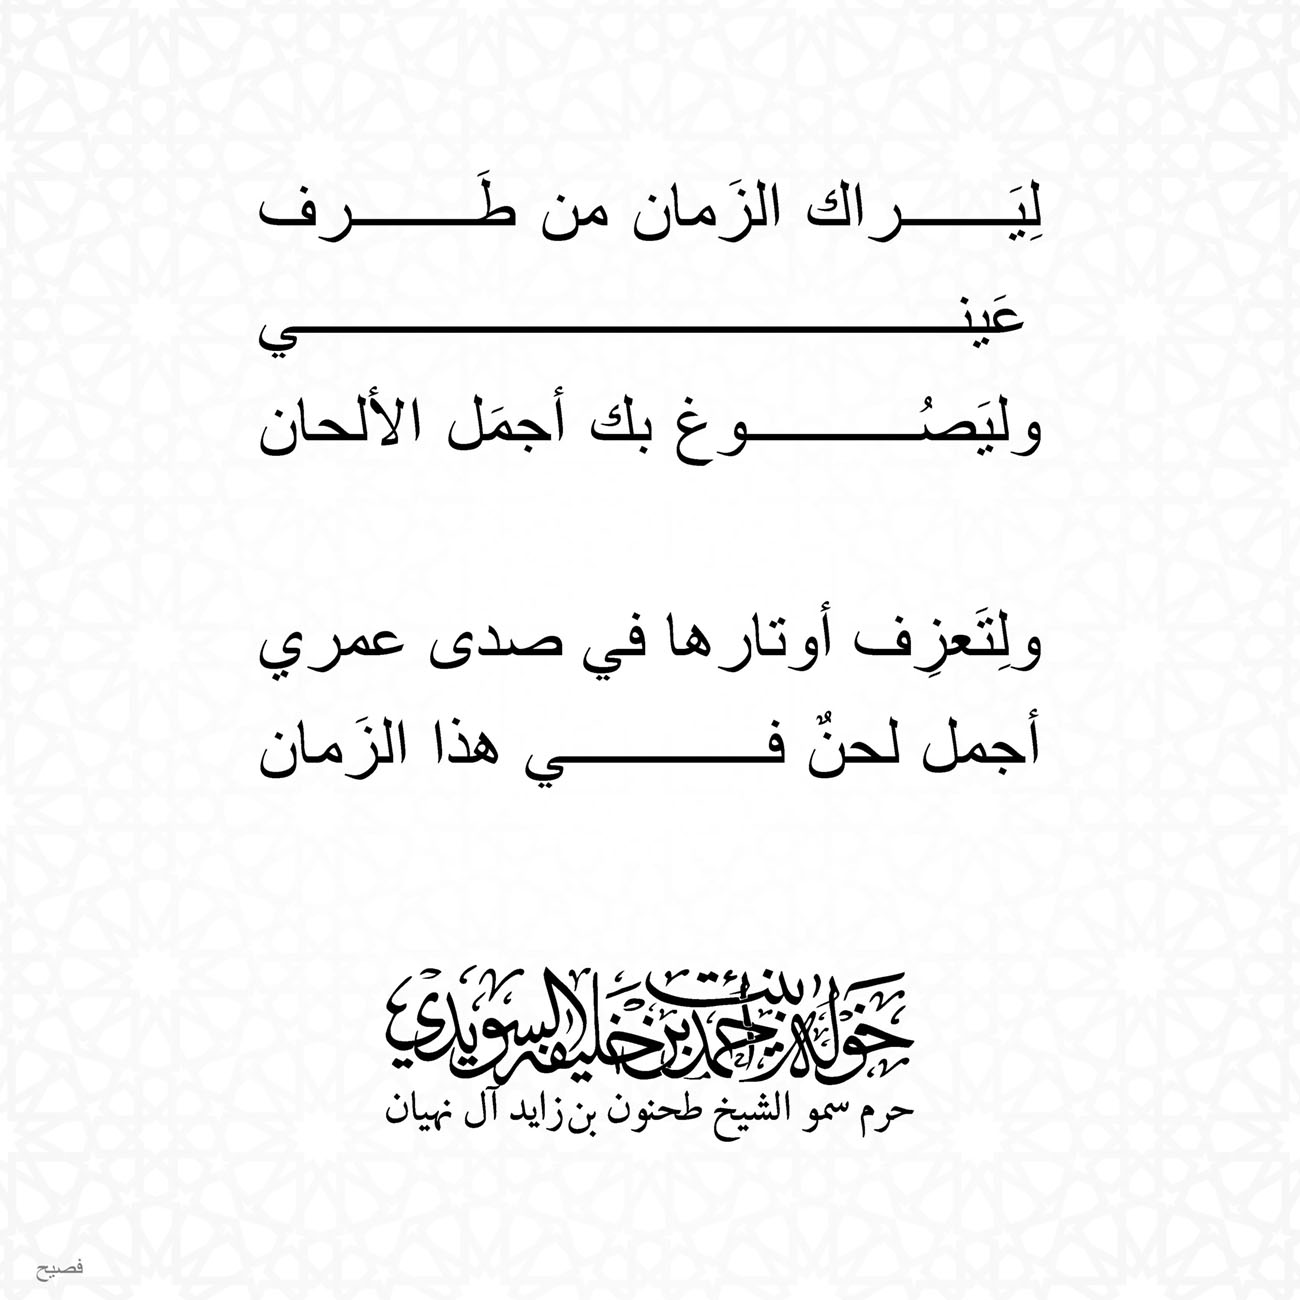 لِيَـــــراك الزَمان من طَـــــرف
عَينـــــــــــــــــــــــــــــــــــــي
وليَصُـــــــــوغ بك أجمَل الألحان
ولِتَعزِف أوتارها في صدى عمري
أجمل لحنٌ فـــــــــــي هذا الزَمان
خولة بنت أحمد بن خليفة السويدي
حرم سمو الشيخ طحنون بن زايد آل نهيان
فصيح